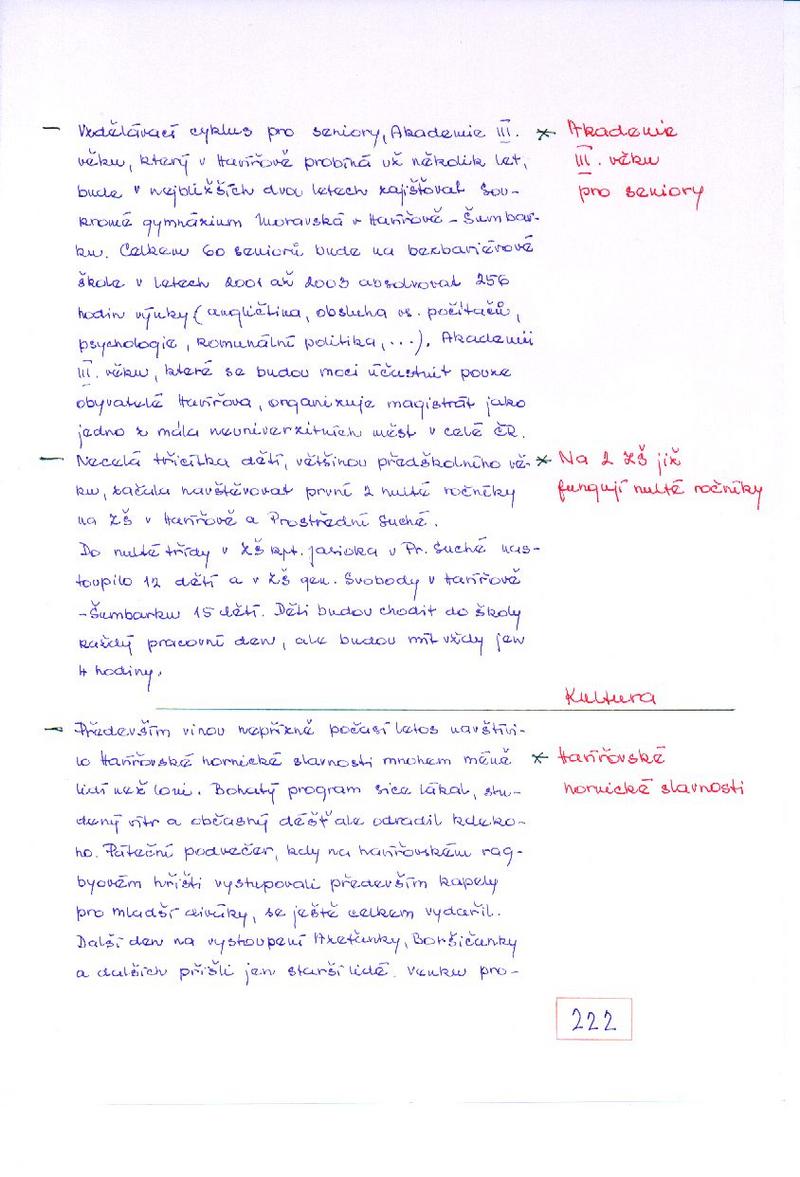 – Vzdělávací cyklus pro seniory, Akademie III. * Akademie
věku, který v Havířově probíhá už několik let, III. věku
bude v nejbližších dvou letech zajišťovat Sou- pro seniory
kromé gymnázium Moravská v Havířově – Šumbar-
ku. Celkem 60 seniorů bude na bezbariérové
škole v letech 2001 až 2003 absolvovat 256
hodin výuky (angličtina, obsluha os. počítačů,
psychologie, komunální politika, ...). Akademii
III. věku, které se budou moci účastnit pouze
obyvatelé Havířova, organizuje magistrát jako
jedno z mála neuniverzitních měst v celé ČR.
– Necelá třicítka dětí, většinou předškolního vě- * Na 2 ZŠ již
ku, začala navštěvovat první 2 nulté ročníky fungují nulté ročníky
na ZŠ v Havířově a Prostřední Suché.
Do nulté třídy v ZŠ kpt. Jasioka v Pr. Suché nas-
toupilo 12 dětí a v ZŠ gen. Svobody v Havířově
-Šumbarku 15 dětí. Děti budou chodit do školy
každý pracovní den, ale budou mít vždy jen
4 hodiny.
Kultura
– Především vinou nepřízně počasí letos navštívi-
lo Havířovské hornické slavnosti mnohem méně * Havířovské
lidí než loni. Bohatý program sice lákal, stu- hornické slavnosti
dený vítr a občasný déšť ale odradil kdeko-
ho. Páteční podvečer, kdy na havířovském rag-
byovém hřišti vystupovali především kapely
pro mladší diváky, se ještě celkem vydařil.
Další den na vystoupení Maxeťanky, Boršičanky
a dalších přišli jen starší lidé. Venku pro-
222